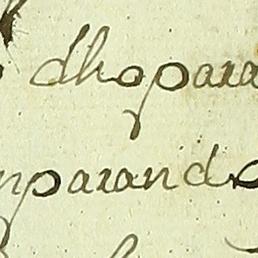 dho para
mparando